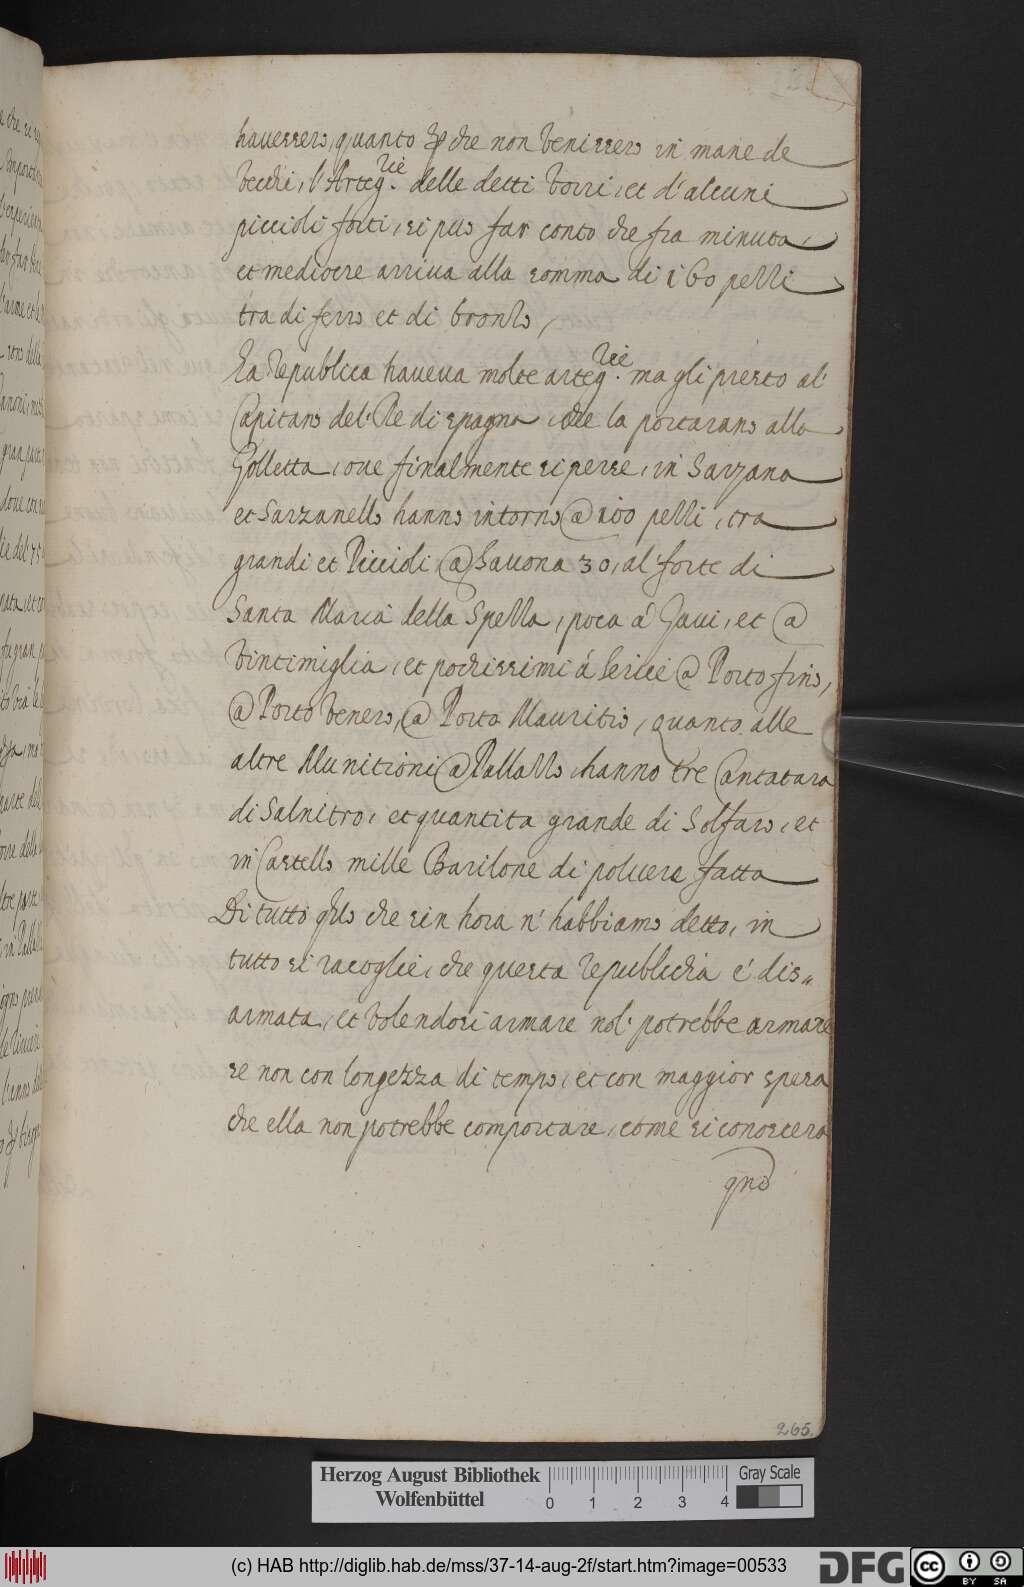 hauessero, quanto p che non venissero in mane de
vecchi, l'Arteg.rie delle detti Torri, et d'alcuni
piccioli forti, si può far conto che fra minuta,
et mediocre arriva alla somma di 160 pezzi
tra di ferro et di bronzo,
La Republica haueua molte arteg.rie ma gli presto al'
Capitano del' Re di spagna, che la portarano alla
Golletta, oue finalmente si perse, in Sarzana
et Sarzanello hanno intorno @ 100 pezzi, tra
grandi et Piccioli, @ Sauona 30, al' forte di
Santa Maria della Spezza, poca á Gaui, et @
Vintimiglia, et pochissimi á Lerice @ Porto fino,
@ Porto Venero, @ Porto Mauritio, quanto alle
altre Munitioni @ Pallazzo, hanno tre Cantatara
di Salnitro, et quantita grande di Solfaro, et
in Castello mille Barilone di poluere fatta
Di tutto qllo che sin hora n' habbiamo detto, in
tutto si racoglie, che questa republichia é dis„
armata, et volendosi armare nol' potrebbe armare
se non con longezza di tempo, et con maggior spesa
che ella non potrebbe comportare, come si conoscera
qndo
265.
Herzog August Bibliothek
Wolfenbüttel
0 1 2 3 4
Gray Scale
(c) HAB http://diglib.hab.de/mss/37-14-aug-2f/start.htm?image=00533
DFG
cc BY SA